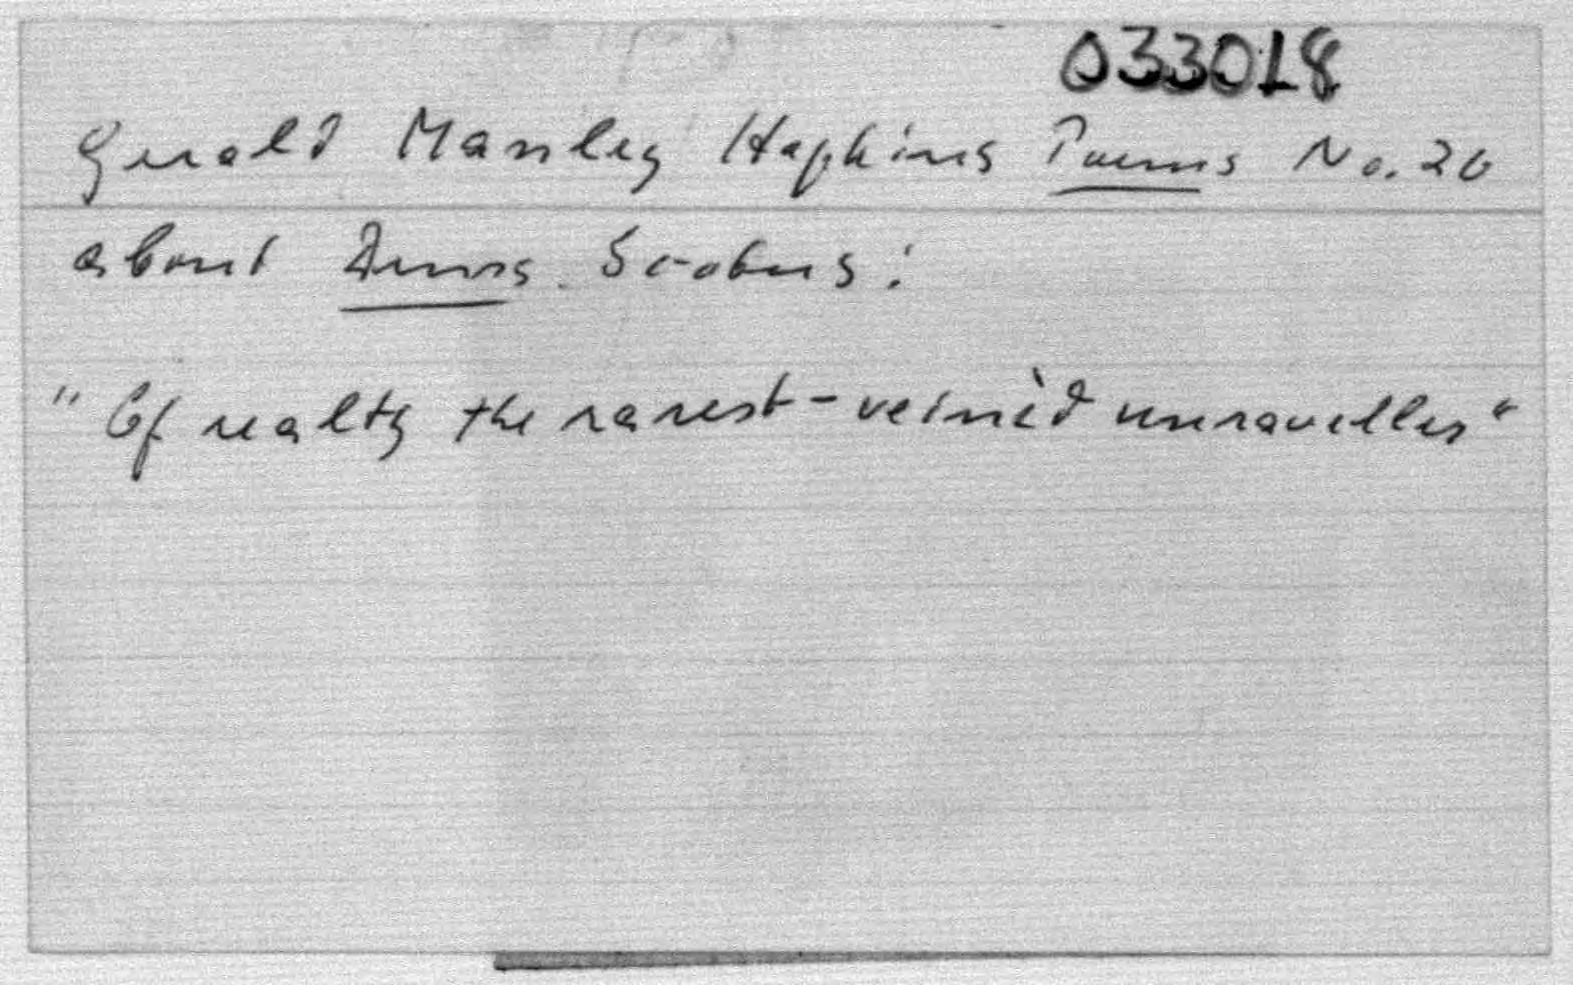 033018
Gerald Manley Hopkins Poems No. 20
about Duns Scotus:
"Of realty the rarest-veinèd unraveller"